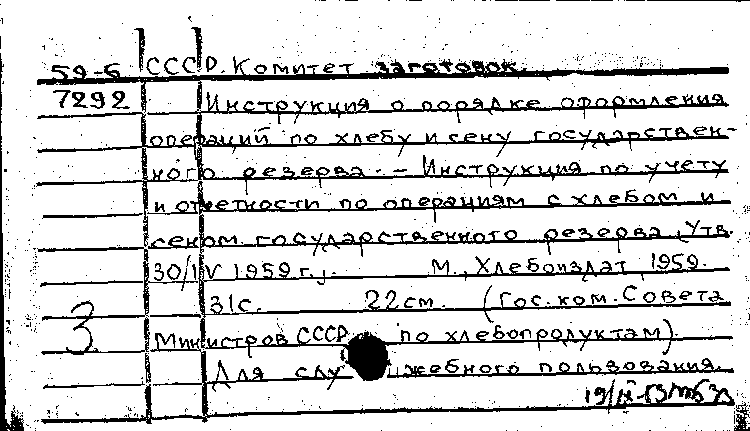 59-6 СССР. Комитет заготовок.
7292 Инструкция о порядке оформления
операций по хлебу и сену государствен-
ного резерва. – Инструкция по учету
и отчетности по операциям с хлебом и
сеном государственного резерва. Утв.
30/IV 1959 г., М., Хлебоиздат, 1959.
31 с. 22 см. (Гос. ком. Совета
3 Министров СССР по хлебопродуктам).
Для служебного пользования.